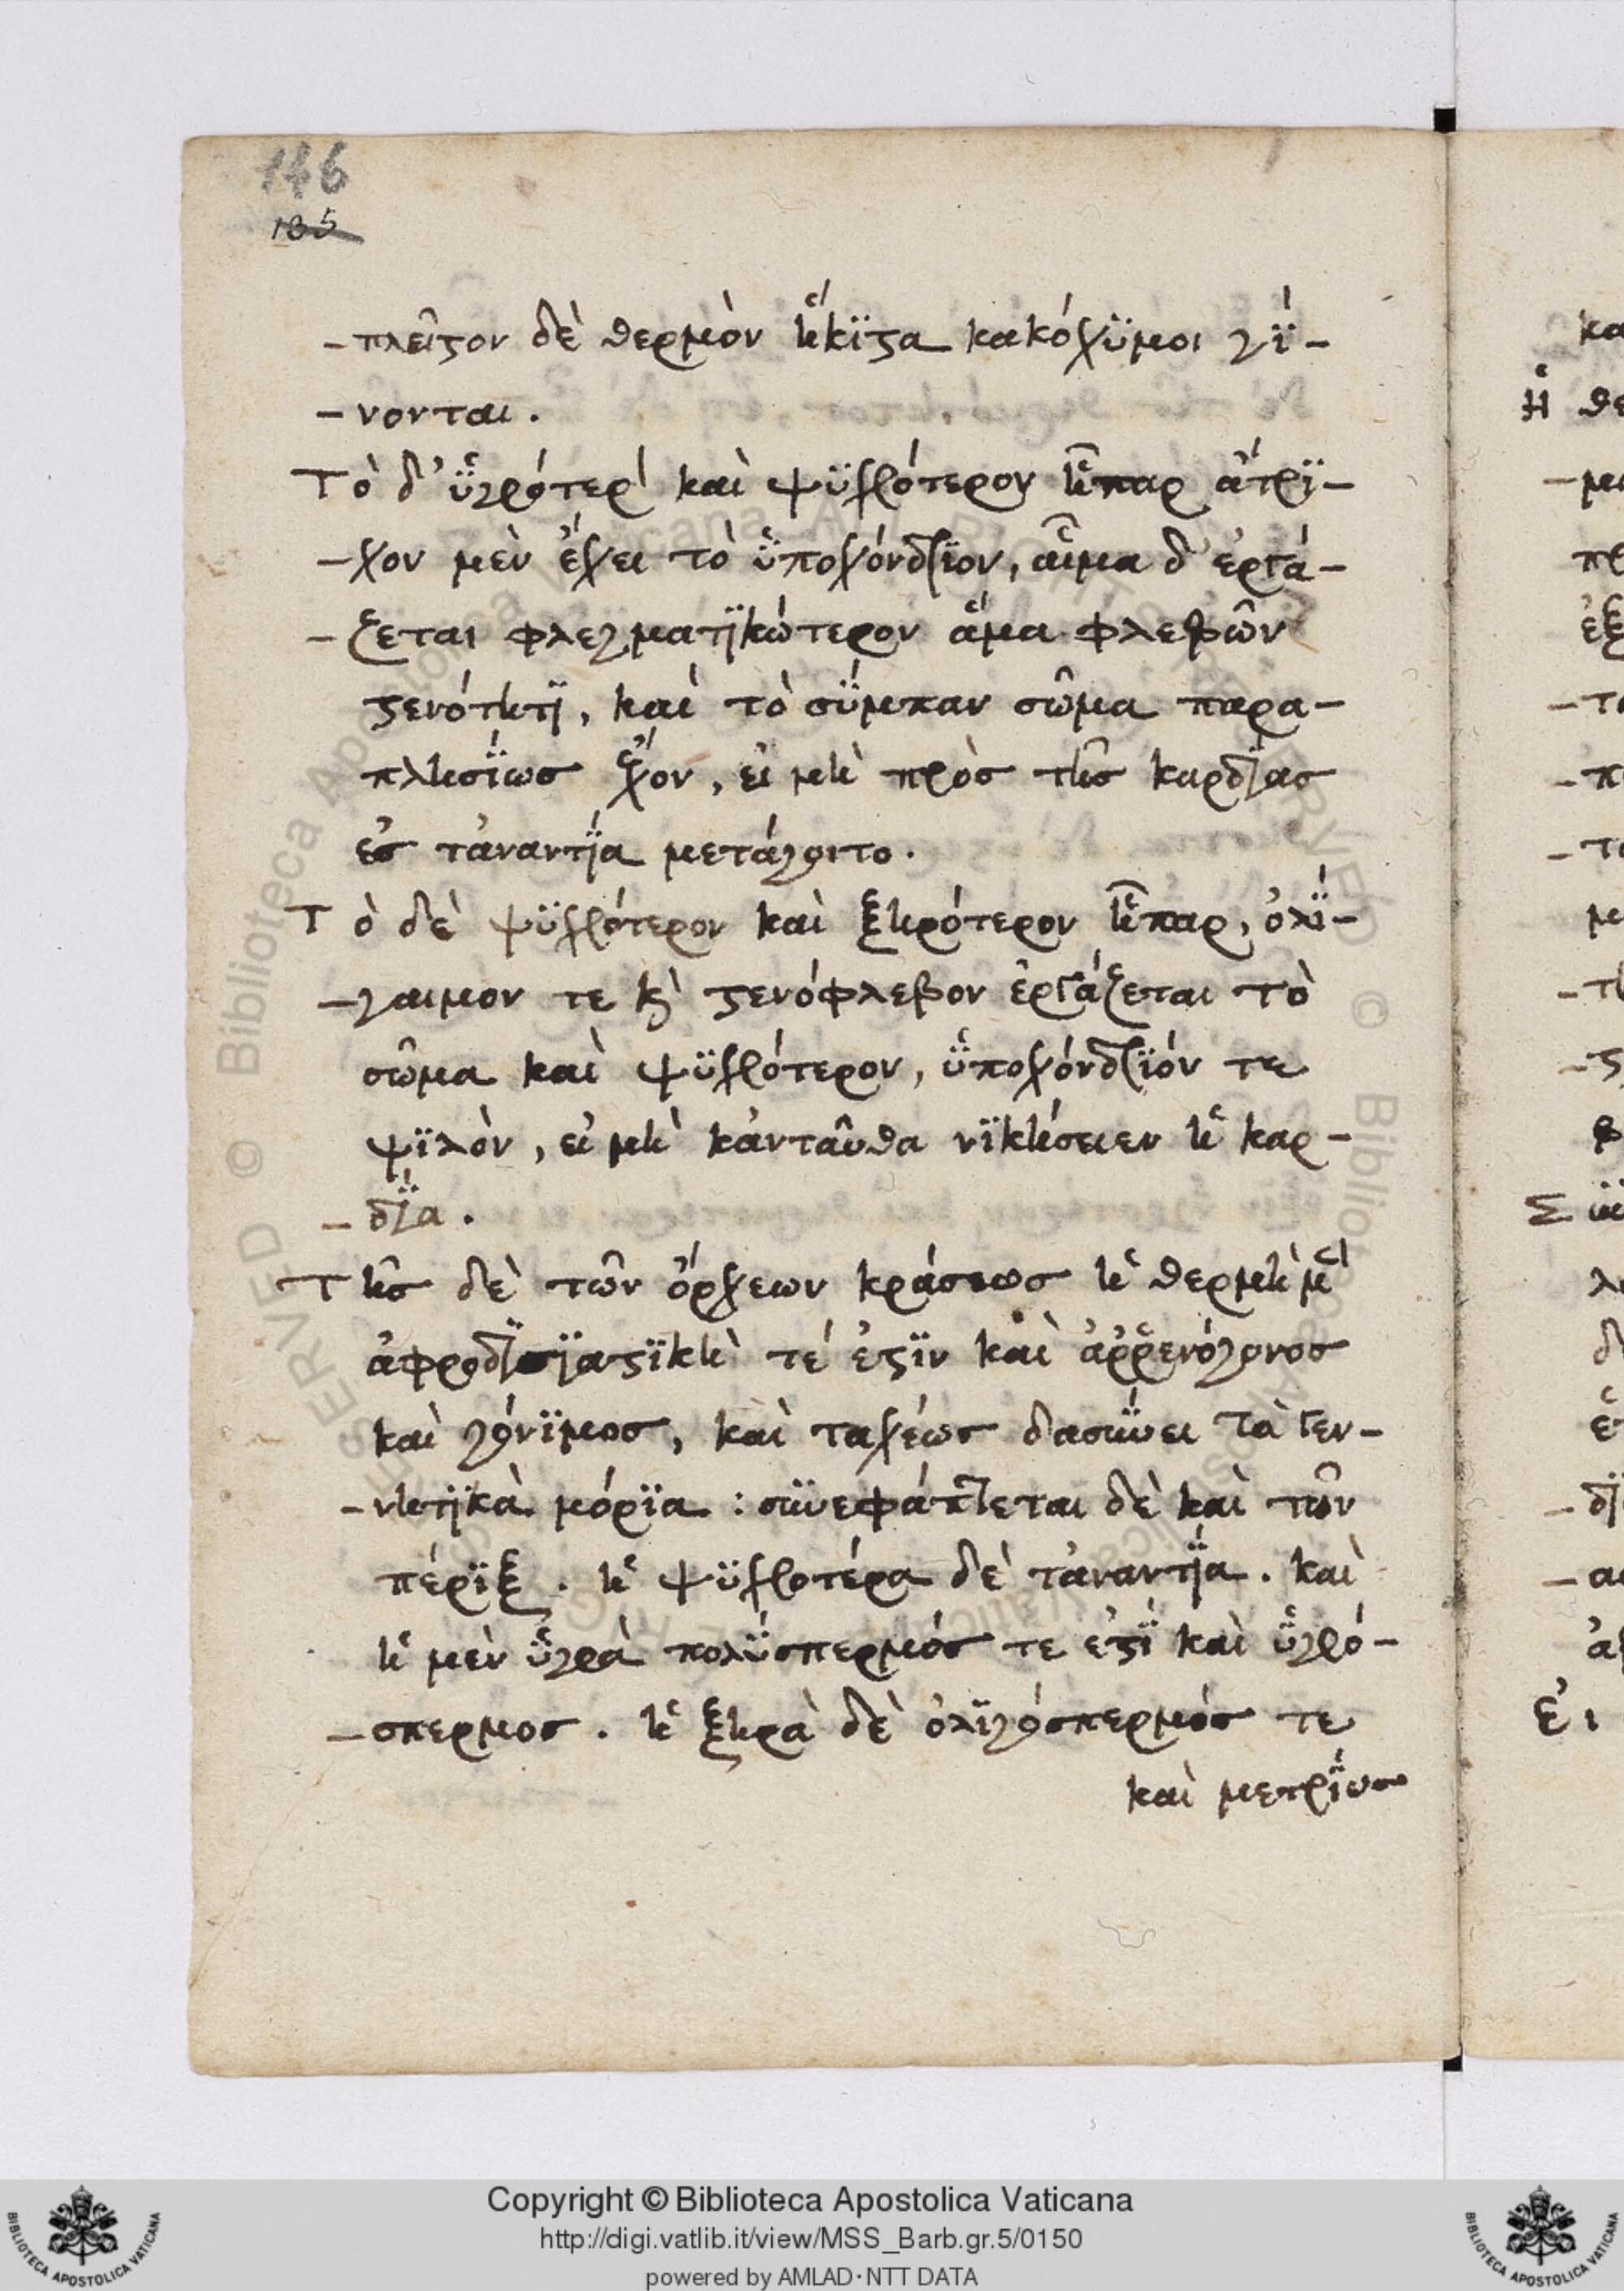 146
135
-πλεῖστον δὲ θερμὸν ἥκϊστα κακόχϋμοι γΐ-
-νονται.
Τὸ δ' ὑγρότερ' καὶ ψϋχρότερον ἧπαρ ἄτρϊ-
-χον μὲν ἔχει τὸ ὑποχόνδρϊον, αἷμα δ' ἐργά-
-ζεται φλεγματϊκώτερον ἅμα φλεβῶν
στενότητϊ, καὶ τὸ σΰμπαν σῶμα παρα-
πλησΐως ἔχον, εἰ μὴ πρὸς τῆς καρδΐας
ἐς τἀναντΐα μετάγοιτο.
Τὸ δὲ ψϋχρότερον καὶ ξηρότερον ἧπαρ, ὀλΐ-
-γαιμον τε κὶ στενόφλεβον ἐργάζεται τὸ
σῶμα καὶ ψϋχρότερον, ὑποχόνδρϊόν τε
ψϊλὸν, εἰ μὴ κἀνταῦθα νϊκήσειεν ἡ καρ-
-δΐα.
Τῆς δὲ τῶν ὄρχεων κράσεως ἡ θερμὴ μ'
ἀφροδϊσϊαστϊκὴ τέ ἐστϊν καὶ ἀῤῥενόγονος
καὶ γόνϊμος, καὶ ταχέως δασΰνει τὰ γεν-
-νητϊκὰ μόρϊα : σϋνεφάπτεται δὲ καὶ τῶν
πέρϊξ. ἡ ψϋχροτέρα δὲ τἀναντΐα. καὶ
ἡ μὲν ὑγρὰ πολΰσπερμός τε ἐστΐ καὶ ὑγρό-
-σπερμος. ἡ ξηρὰ δὲ ὀλϊγόσπερμός τε
καὶ μετρΐως
Copyright © Biblioteca Apostolica Vaticana
http://digi.vatlib.it/view/MSS_Barb.gr.5/0150
powered by AMLAD·NTT DATA